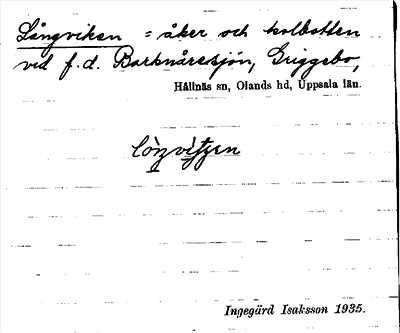 Långviken = åker och kolbotten
vid f.d. Barknåresjön, Griggebo,
Hållnäs sn, Olands hd, Uppsala län.
Ingegärd Isaksson 1935.